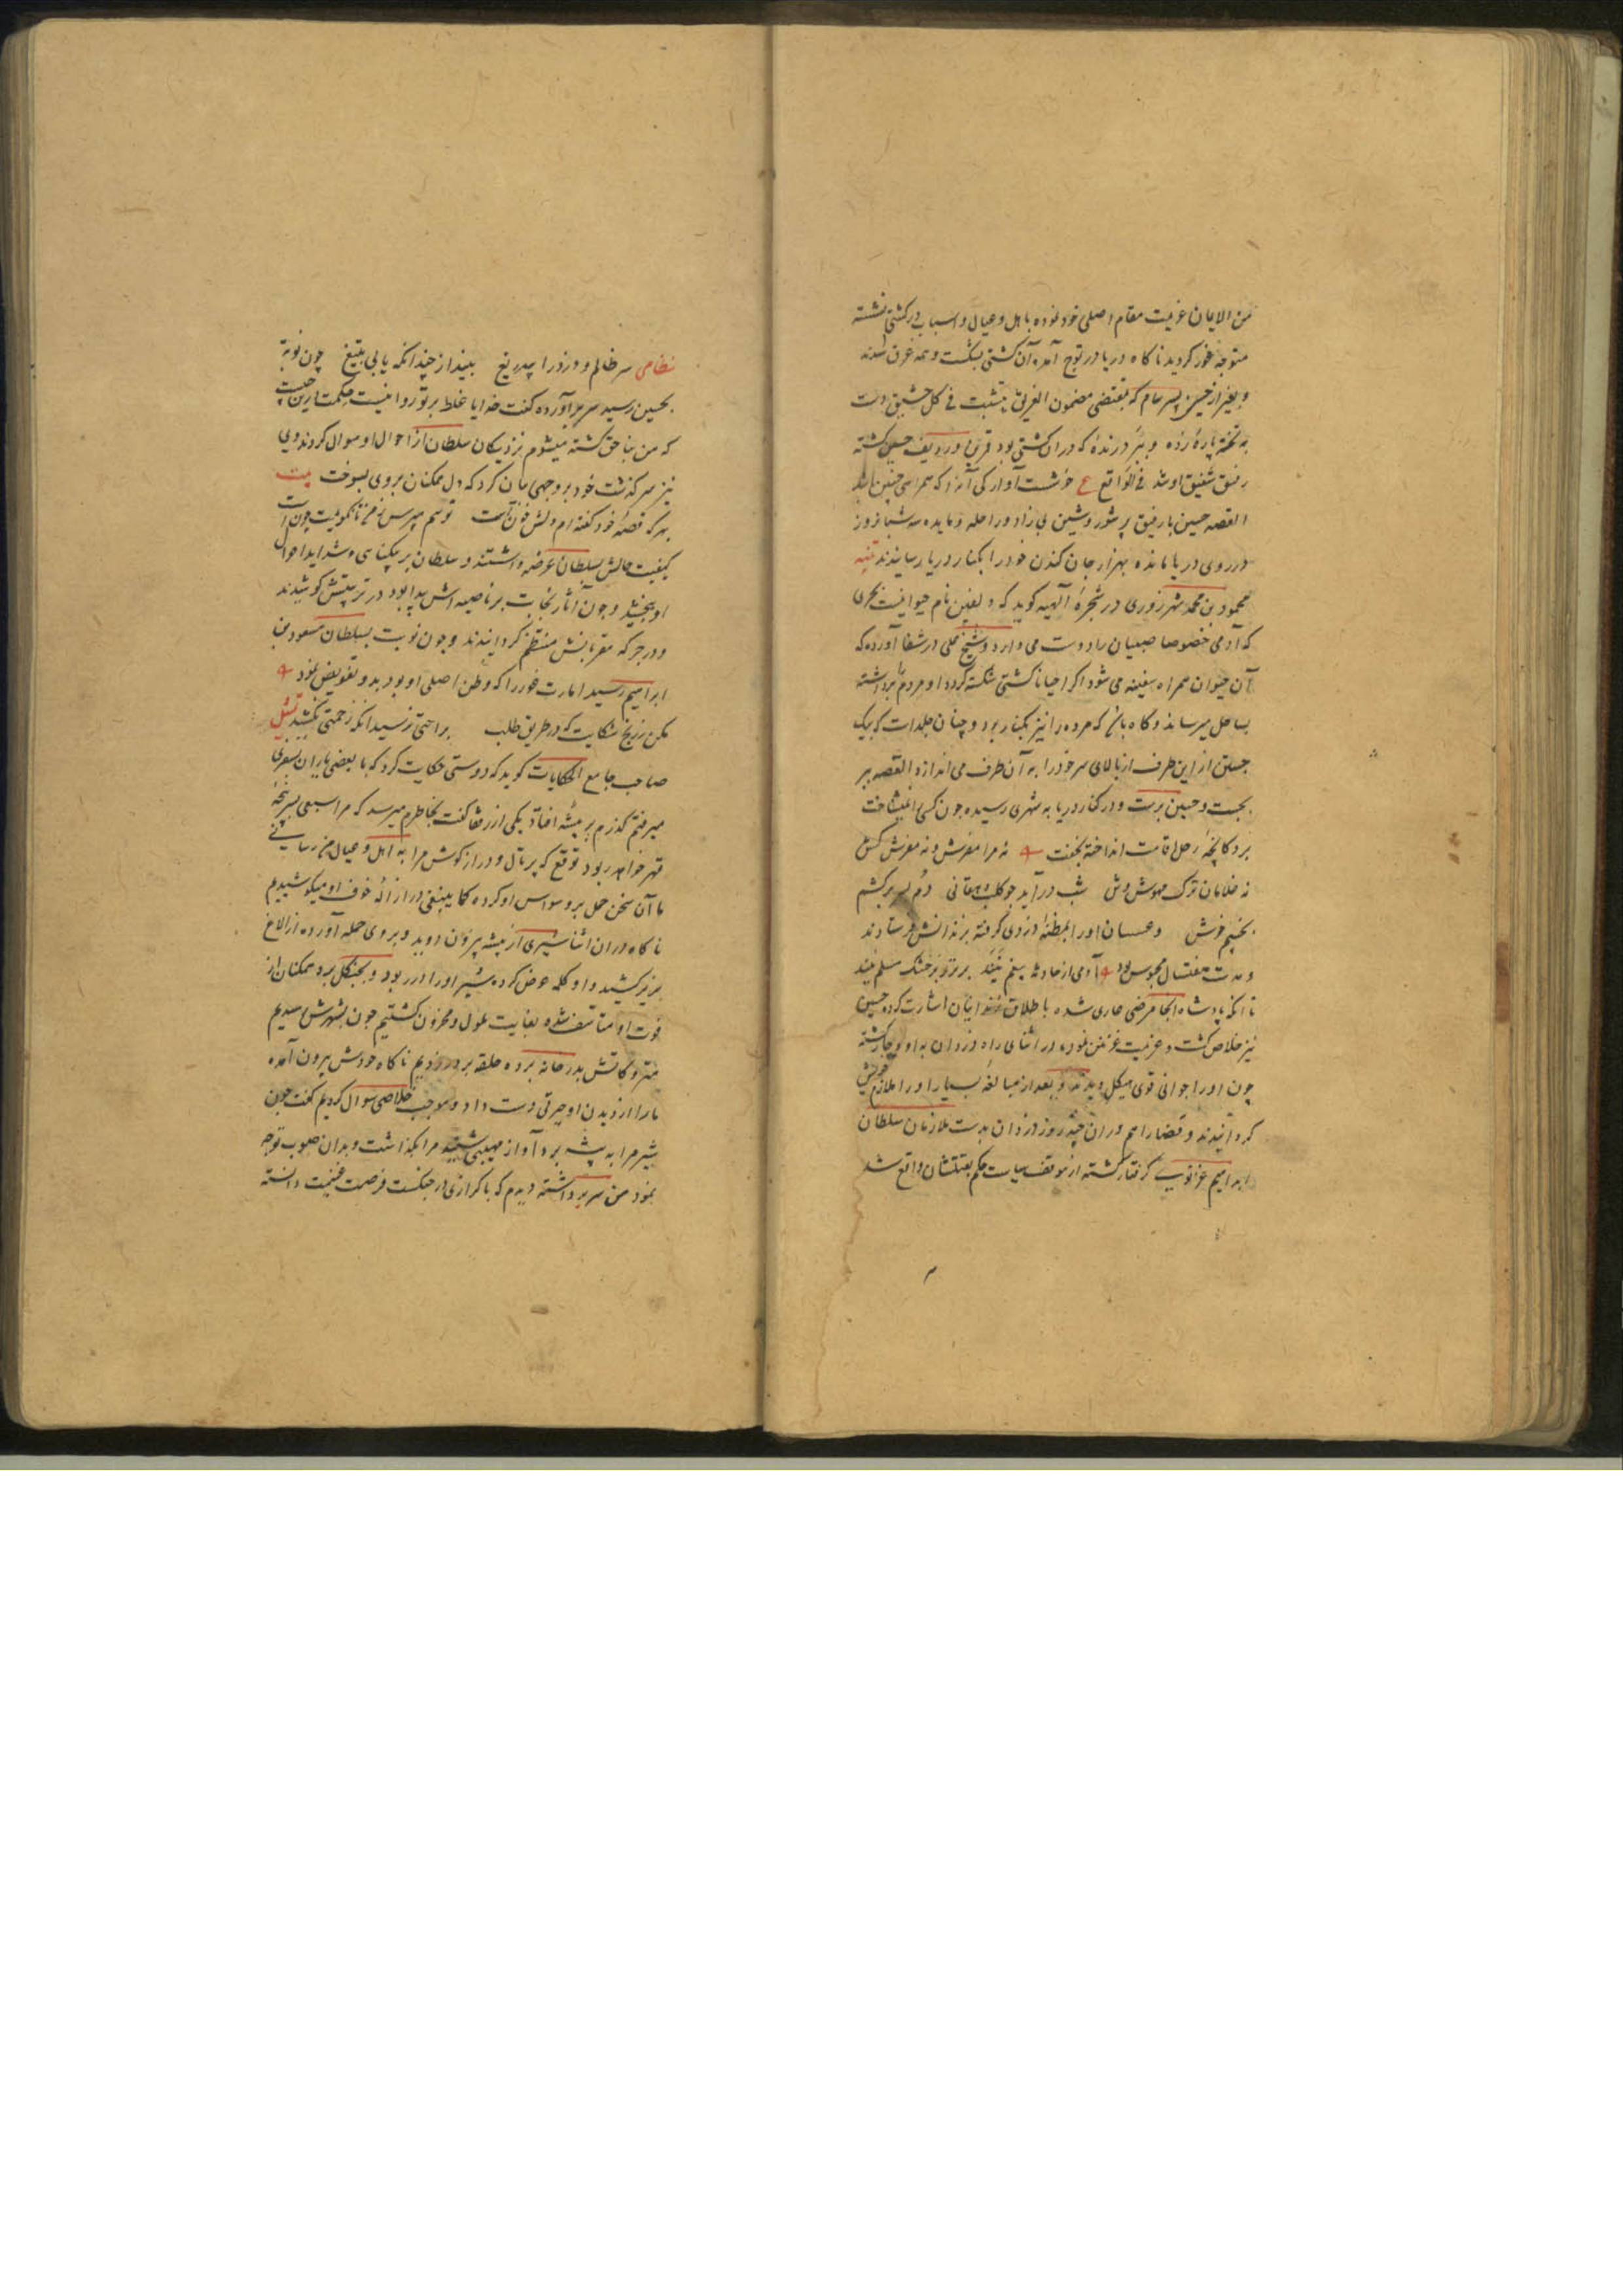 من الایمان عزیمت مقام اصلی خود نموده با اهل و عیال و اسباب در کشتی نشسته
متوجه غور کردید ناکاه دریا در تموج آمده آن کشتی بشکست و همه غرق شدند
و بغیر از حسین پسر سام که بمقتضی مضمون الغریق یتشبث فی کل حشیش دست
به تخته پارۀ زده و ببر درندۀ که در ان کشتی بود قرین و ردیف حسین کشته
رفیق شفیق او شد فی الواقع ع خوشست آوارکی آنرا که همراهی چنین باشد
القصه حسین با رفیق پر شور و شین بی زاد و راحله و مایده سه شبانروز
در روی دریا مانده بهزار جان کندن خود را بکنار دریا رسانیدند تنبیه
محمود بن محمد شهرزوری در شجرۀ آلهیه کوید که دلفین نام حیوانیست بحری
که آدمی خصوصا صبیان را دوست می دارد و شیخ علی در شفا آورده که
آن حیوان همراه سفینه می شود اکر احیانا کشتی شکسته کردد او مردم را برداشته
بساحل میرساند و کاه باشد که مرده را نیز بکنار برد و چنان جلد است که بیک
جستن از این طرف از بالای سر خود را به آن طرف می اندازد القصه ببر
بجست و حسین برست و در کنار دریا به شهری رسیده چون کسی را نمیشناخت
بر دکانچۀ رحل اقامت انداخته بخفت نه مرا مفرش و نه مفرش کش
نه غلامان ترک مهوش وش شب در آید چو کلب دهقانی دم بسر برکشم
بخسپم خوش و عسسان او را بمظنۀ دزدی کرفته بزندانش فرستادند
و مدت هفتسال محبوس بود آدمی از حادثه بیغم نیند بر تر و بر خشک مسلم نیند
تا آنکه پادشاه انجا مرضی طاری شده باطلاق زندانیان اشارت کرده حسین
نیز خلاص کشت و عزیمت غزنین نموده در اثنای راه دزدان به او دوچار کشته
چون او را جوانی قوی هیکل دیدند و بعد از مبالغۀ بسیار او را ملازم خویش
کردانیدند و قضا را هم در ان چند روز دزدان بدست ملازمان سلطان
ابراهیم غزنوی کرفتار کشته از موقف سیاست حکم بقتلشان واقع شد
نظامی سر ظالم و دزد را بیدریغ بینداز چندانکه یابی بتیغ چون نوبة
بحسین رسید سر برآورده کفت خدایا غلط بر تو روا نیست حکمت درین چیست
که من بناحق کشته میشوم نزدیکان سلطان از احوال او سوال کردند وی
نیز سرکذشت خود بر وجهی بیان کرد که دل همکنان بر وی بسوخت بیت
بهر که قصه خود کفته ام دلش خونست تو هم مپرس ز من تا نکویمت چونست
کیفیت حالش بسلطان عرضه داشتند و سلطان بر بیکناهی و شداید احوال
او ببخشید و چون آثار نجابت بر ناصیه اش پیدا بود در تربیتش کوشیدند
و در جرکه مقربانش منتظم کردانیدند و چون نوبت بسلطان مسعود بن
ابراهیم رسید امارت غور را که وطن اصلی او بود بدو تفویض نمود
مکن ز رنج شکایت که در طریق طلب براحتی نرسید آنکه زحمتی نکشید تمثیل
صاحب جامع الحکایات کوید که دوستی حکایت کرد که با بعضی یاران بسفری
میرفتم کذرم بر بیشۀ افتاد یکی از رفقا کفت بخاطرم میرسد که مرا سبعی بسر پنجۀ
قهر خواهد ربود توقع که پرتال و دراز کوش مرا به اهل و عیال من رسانی
ما آن سخن حمل بر وسواس او کرده کما ینبغی در ازالۀ خوف او میکوشیدیم
ناکاه در ان اثنا شیری از بیشه بیرون دوید و بروی حمله آورده از الاغ
بزیر کشید و او کلمه عرض کرده شیر او را در ربود و بجنکل برد همکنان از
فوت او متاسف شده بغایت ملول و محزون کشتیم چون بشهرش رسیدیم
متروکاتش بدر خانه برده حلقه بر در زدیم ناکاه خودش بیرون آمده
ما را از دیدن او حیرتی دست داد و موجب خلاصی سوال کردیم کفت چون
شیر مرا به بیشه برد آواز مهیبی شنید مرا بکذاشت و بدان صوب توجه
نمود من سر برداشته دیدم که با کرازی در جنکست فرصت غنیمت دانسته